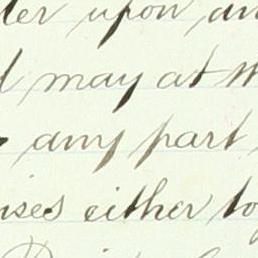 der upon an
d may at
any part
ises either to